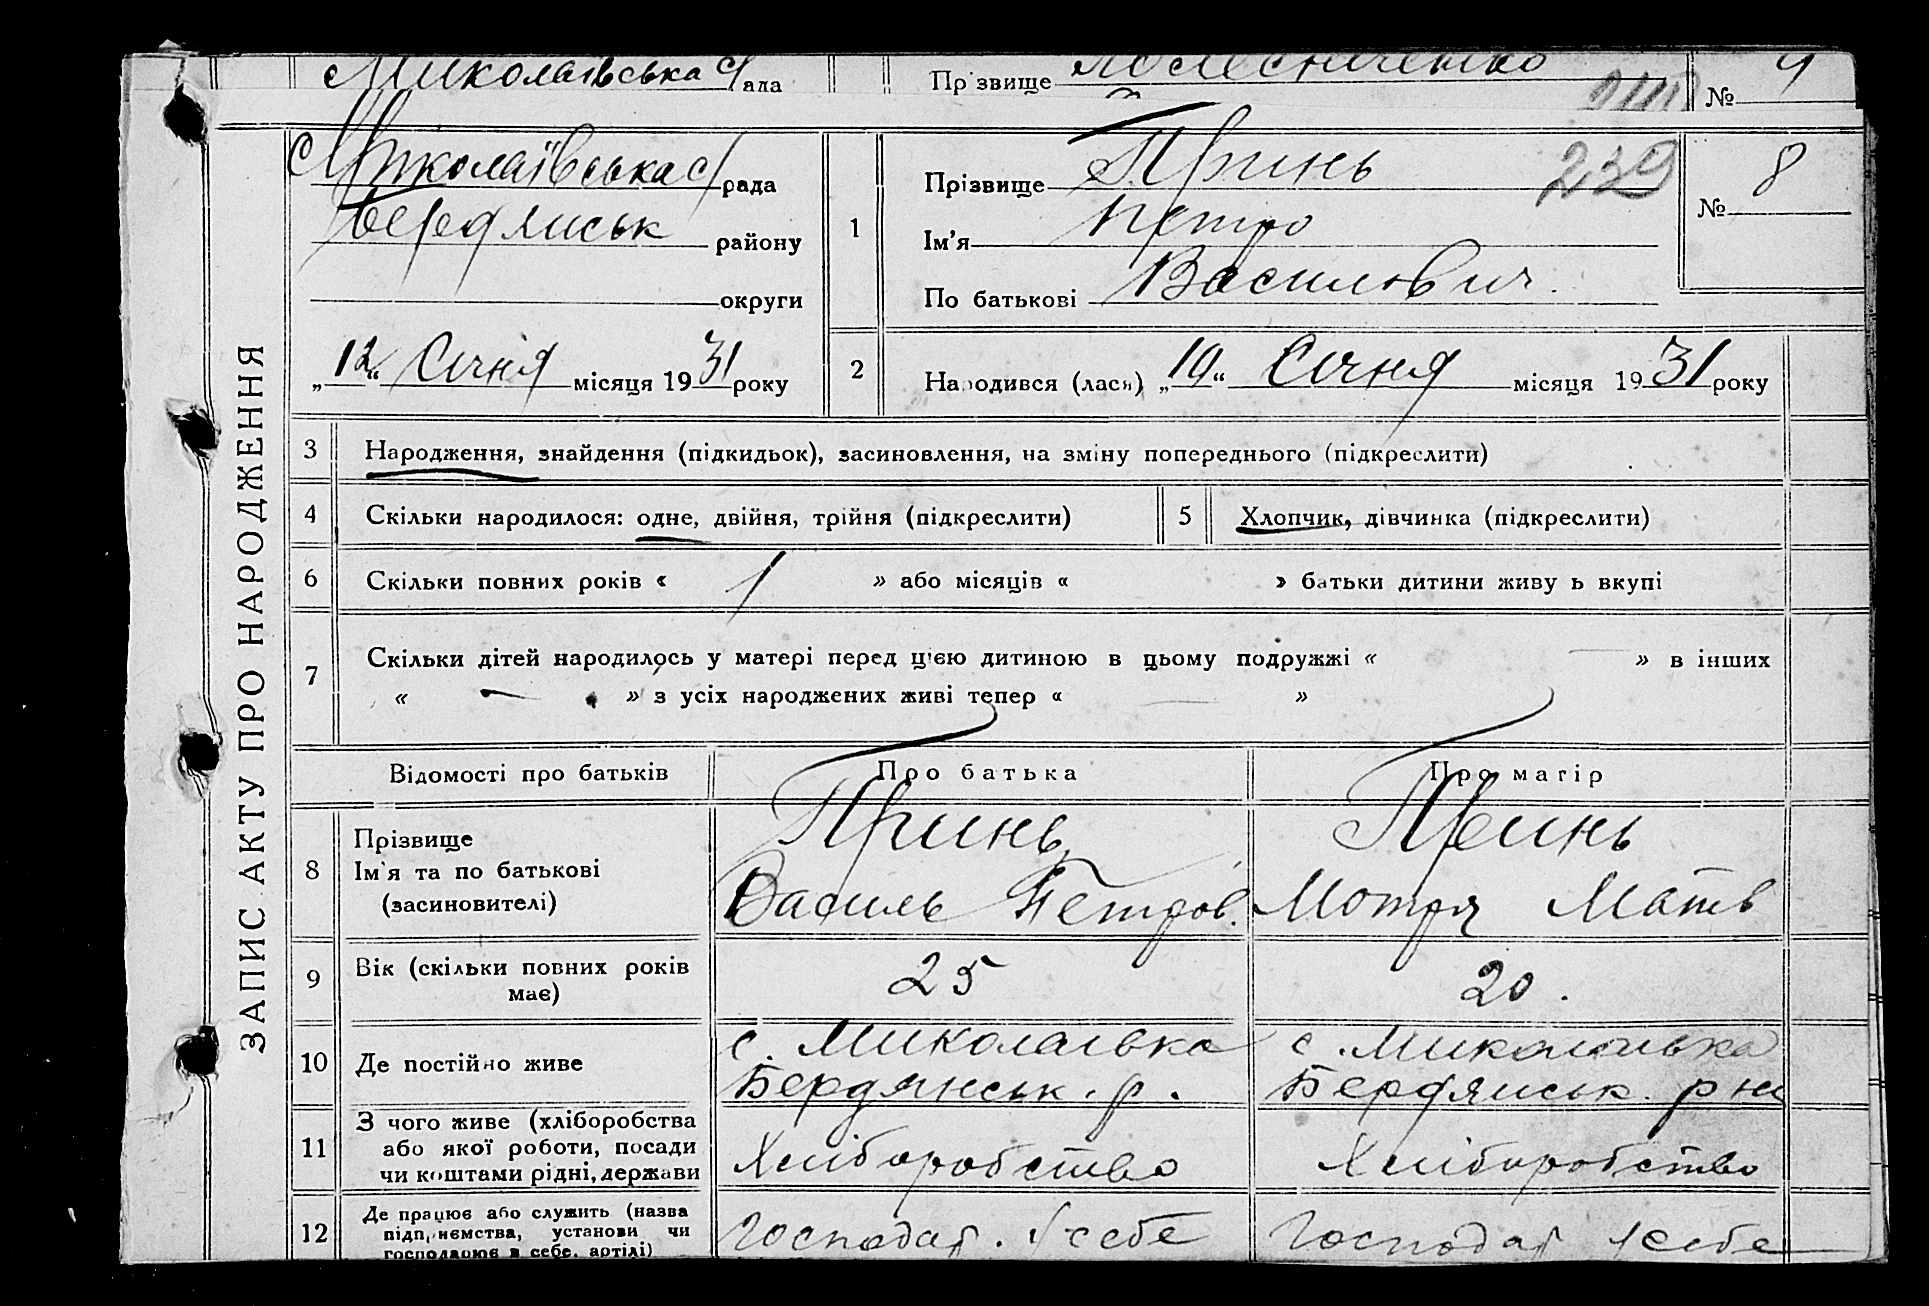 Миколаївська с/рада
Прізвище
№ 9
Миколаївська с/рада
Бердянськ району
округи
„12“ Січня місяця 1931 року
1
Прізвище Принь
Ім'я Петро
По батькові Василович.
239
№ 8
2
Народився (лася) „10“ Січня місяця 1931 року
ЗАПИС АКТУ ПРО НАРОДЖЕННЯ
3 Народження, знайдення (підкидьок), засиновлення, на зміну попереднього (підкреслити)
4 Скільки народилося: одне, двійня, трійня (підкреслити) 5 Хлопчик, дівчинка (підкреслити)
6 Скільки повних років « 1 » або місяців « » батьки дитини живуть вкупі
7 Скільки дітей народилось у матері перед цією дитиною в цьому подружжі « — » в інших
« — » з усіх народжених живі тепер « — »
Відомості про батьків Про батька Про матір
8 Прізвище
Ім'я та по батькові
(засиновителі)
Принь
Василь Петров.
Принь
Мотря Матв
9 Вік (скільки повних років
має)
25
20.
10 Де постійно живе
с. Миколаівка
Бердянськ. р.
с. Миколаівка
Бердянськ. р н
11 З чого живе (хліборобства
або якої роботи, посади
чи коштами рідні, держави
Хліборобство
Хліборобство
12 Де працює або служить (назва
підприємства, установи чи
господарює в себе, артілі)
Господар. у себе
Господар у себе